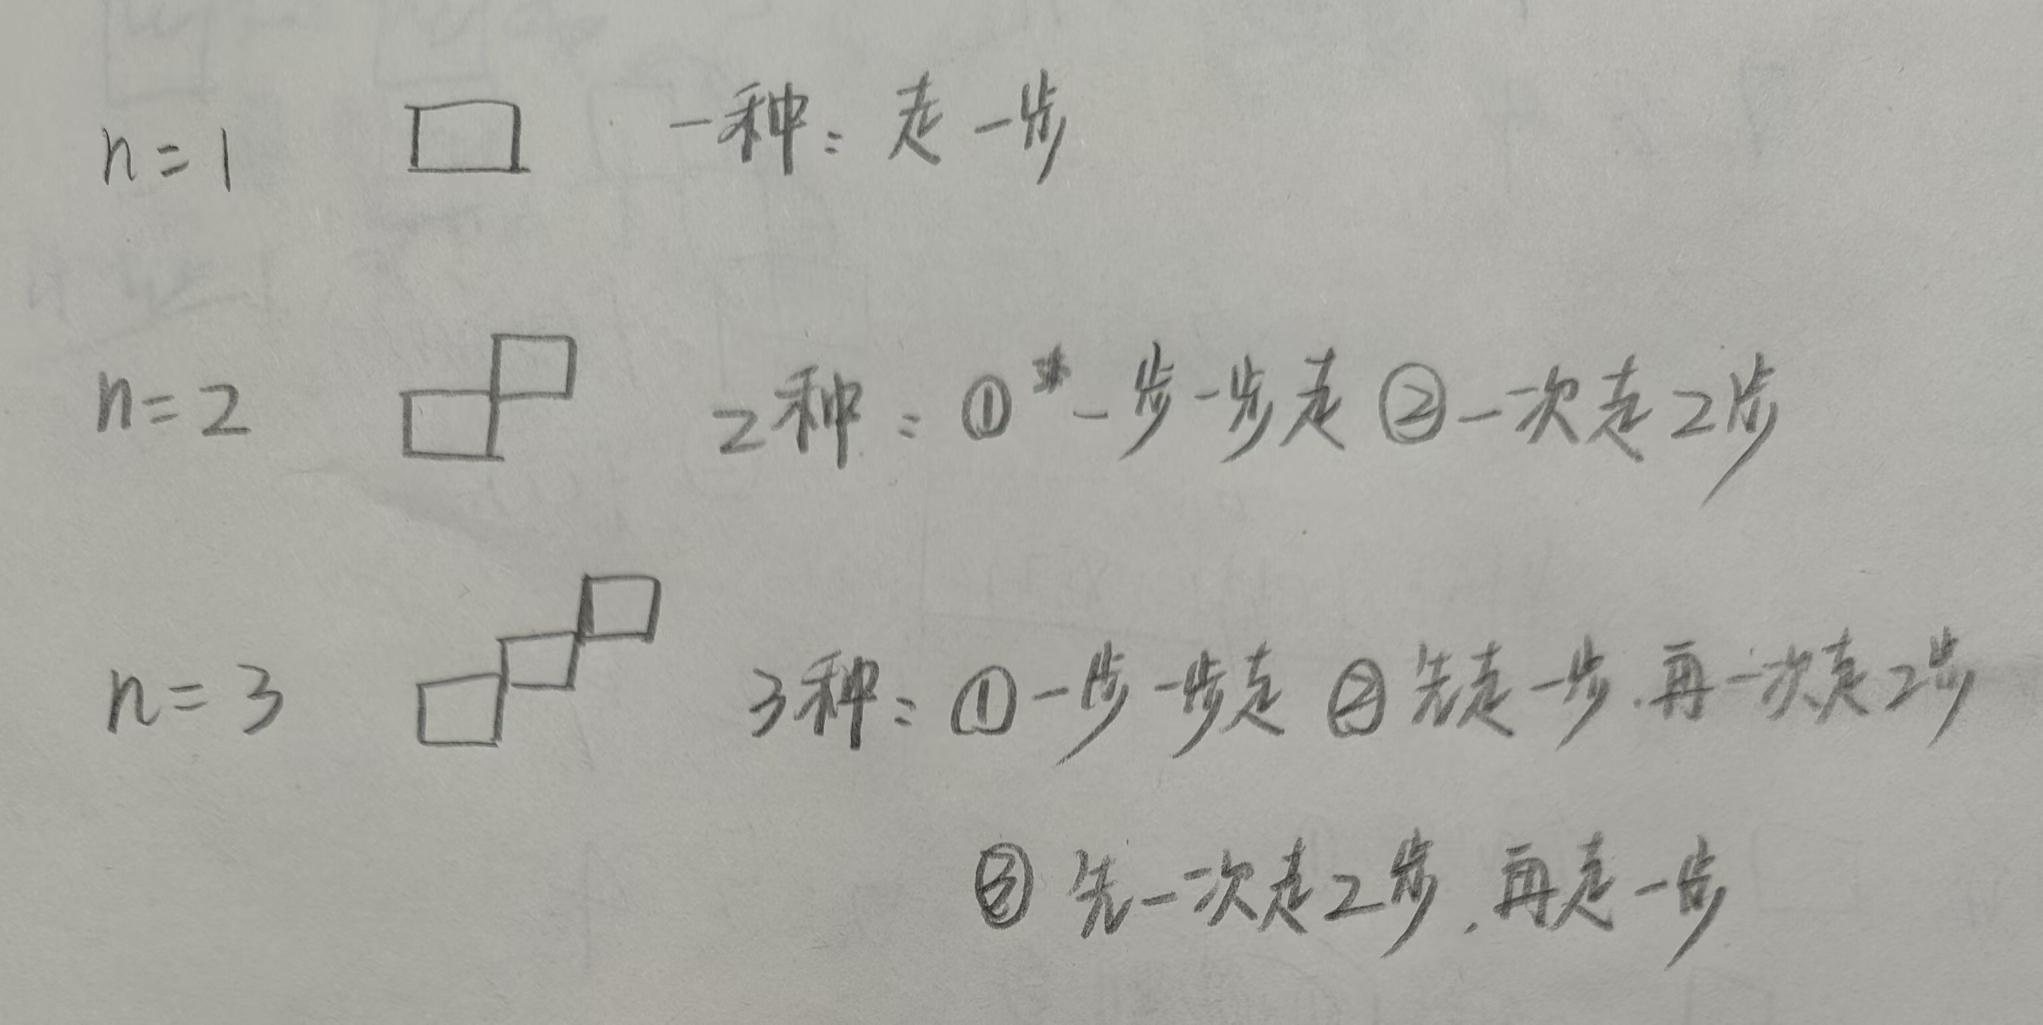 n=1 一种：走一步
n=2 2种：①一步一步走 ②一次走2步
n=3 3种：①一步一步走 ②先走一步.再一次走2步
③先一次走2步.再走一步